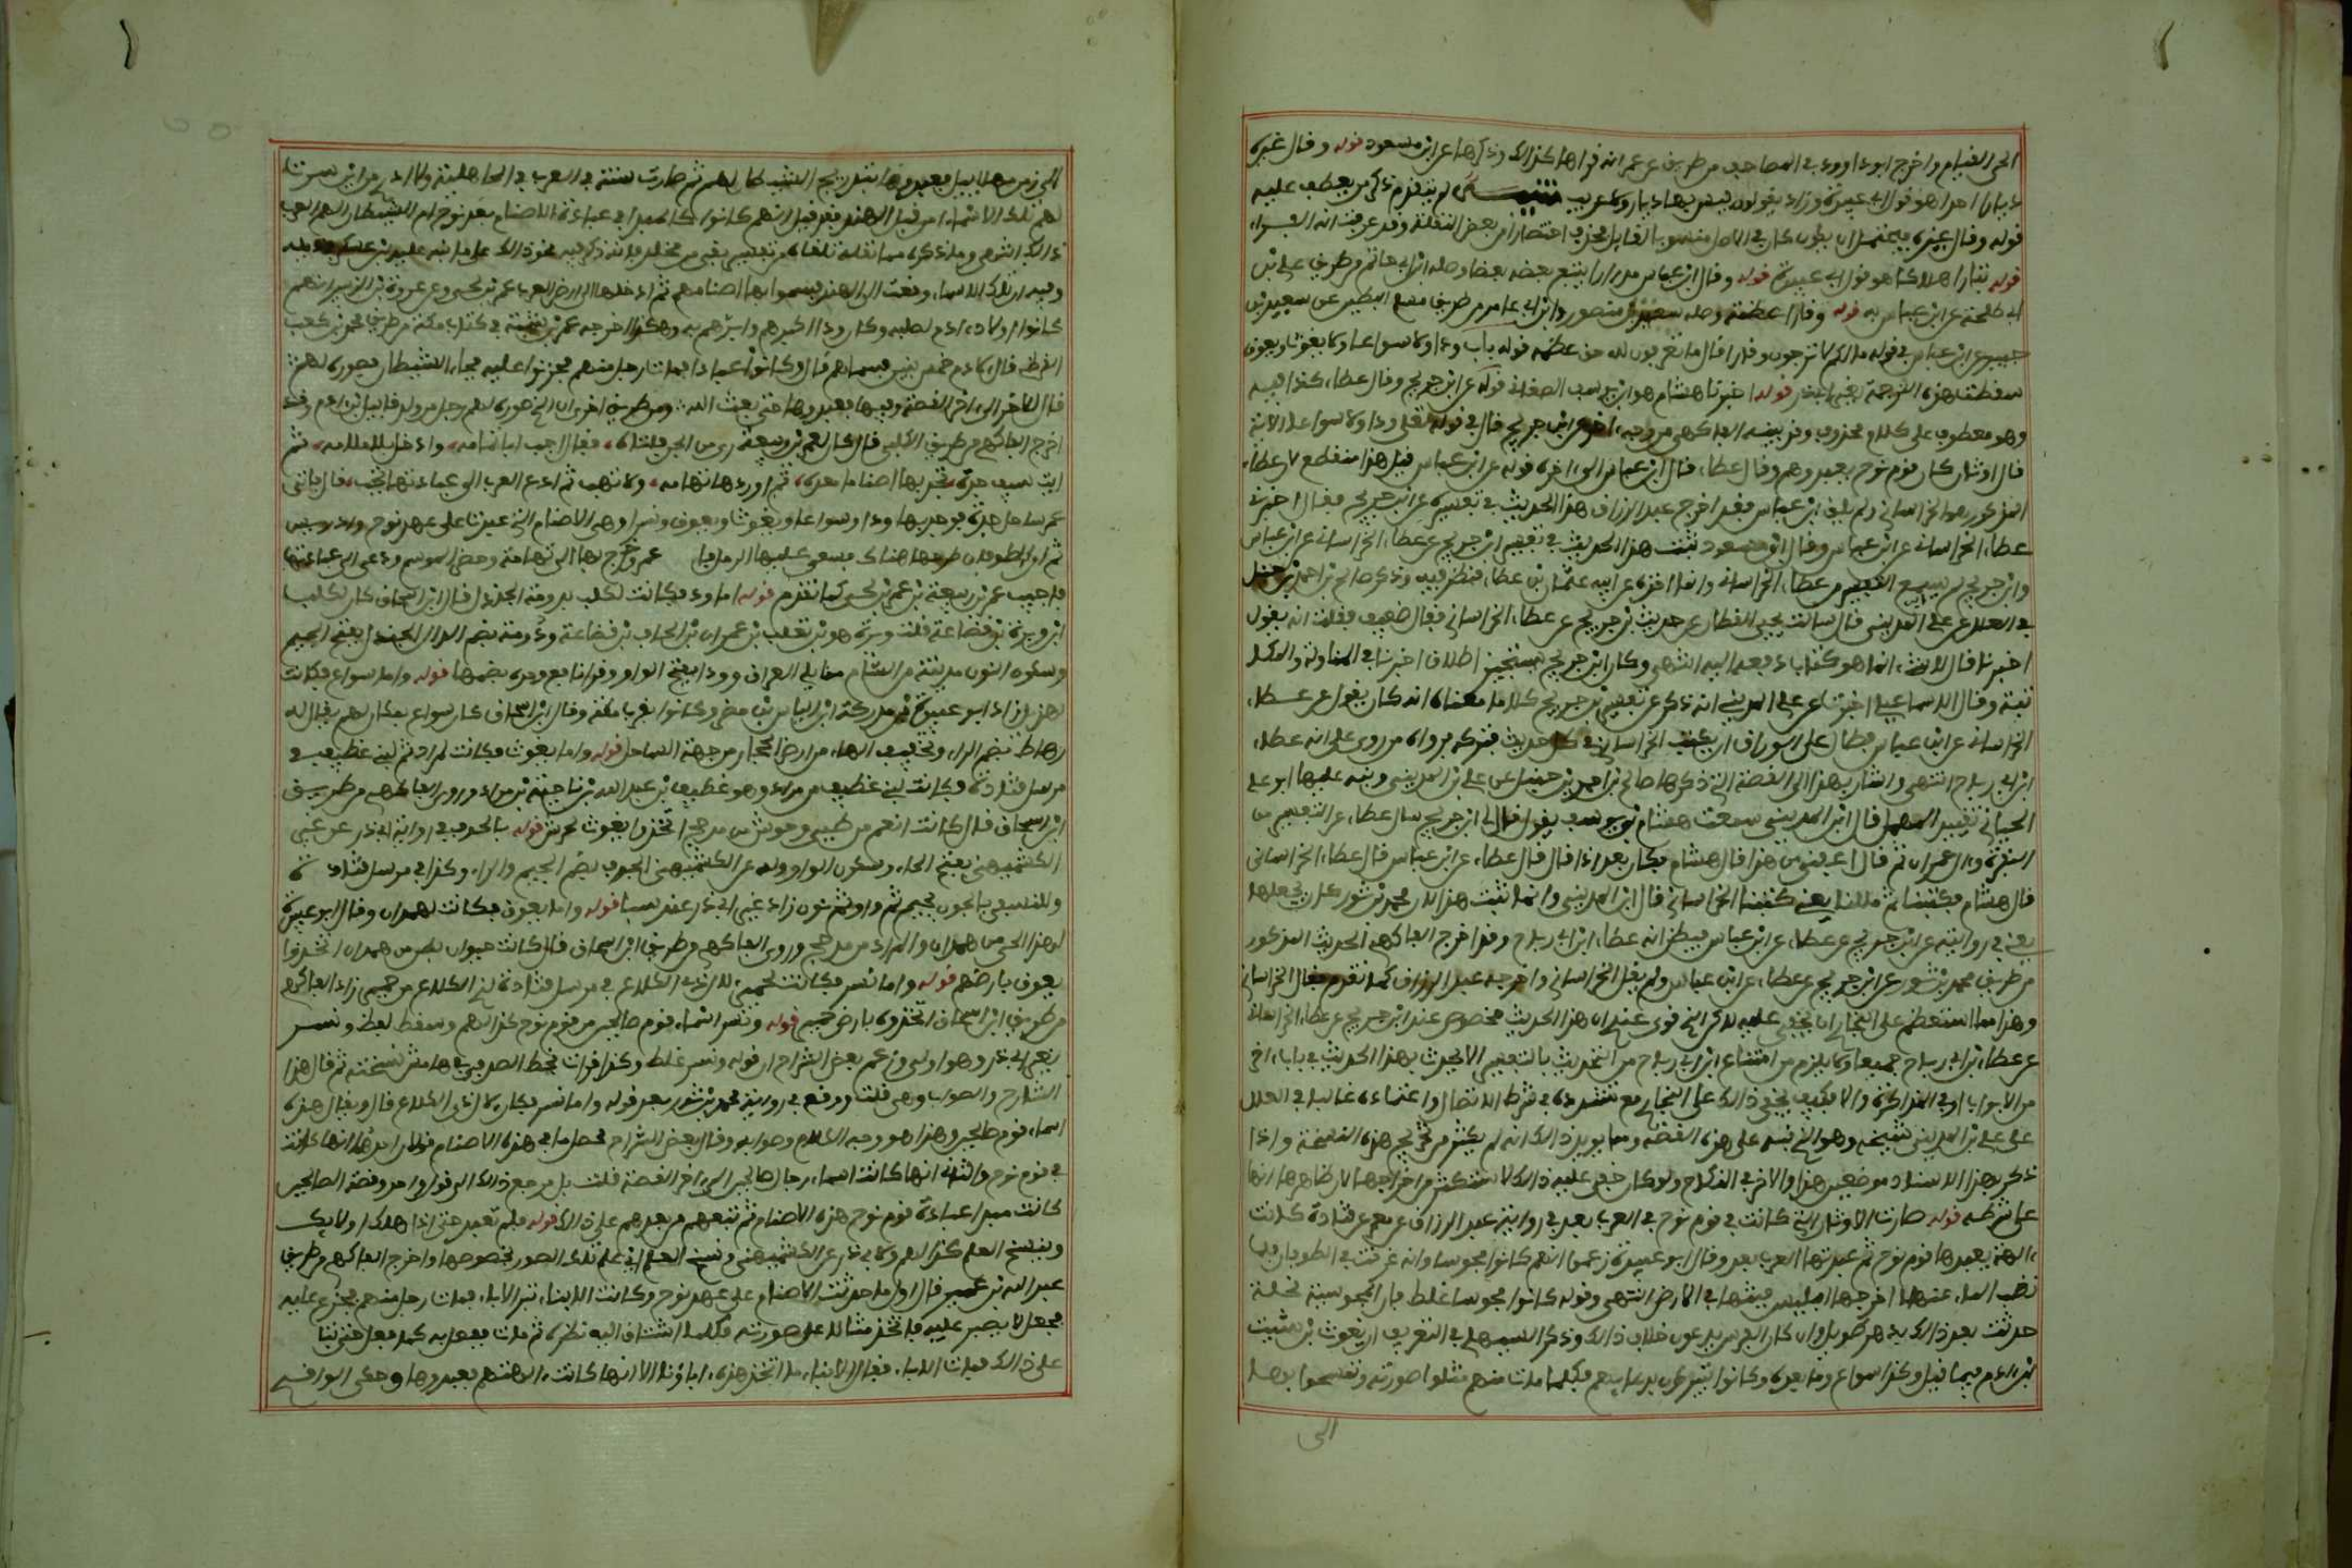 الحي القيام واخرج ابو داوود في المصاحف من طريق عن عمر انه قراها كذلك وذكرها عن ابن مسعود قوله وقال غيره
ديارا احدا هو قول ابي عبيدة وزاد يقولون ليس بها ديار ولا عريب تنبيه لم يتقدم ذكر من يعطف عليه
قوله وقال غيره فيحتمل ان يكون كان في الاصل منسوبا لقايل فحذف اختصارا من بعض النقلة وقد عرفت انه الفراء
قوله تبارا هلاكا هو قول ابي عبيدة قوله وقال ابن عباس مدرارا يتبع بعضه بعضا وصله ابن ابي حاتم من طريق علي بن
ابي طلحة عن ابن عباس به قوله وقارا عظمة وصله سعيد بن منصور وابن ابي حاتم من طريق مسلم البطين عن سعيد بن
جبير عن ابن عباس في قوله ما لكم لا ترجون لله وقارا قال ما تعرفون لله حق عظمته قوله باب ودا ولا سواعا ولا يغوث ويعوق
سقطت هذه الترجمة لغير ابي ذر قوله اخبرنا هشام هو ابن يوسف الصنعاني قوله عن ابن جريج وقال عطاء كذا فيه
وهو معطوف على كلام محذوف وقد بينه الفاكهي من وجه اخر عن ابن جريج قال في قوله تعلى ودا ولا سواعا الاية
قال اوثان كان قوم نوح يعبدونهم وقال عطاء قال ابن عباس الى اخره قوله عن ابن عباس قيل هذا منقطع لان عطاء
المذكور هو الخراساني ولم يلق ابن عباس فقد اخرج عبد الرزاق هذا الحديث في تفسيره عن ابن جريج فقال اخبرني
عطاء الخراساني عن ابن عباس وقال ابو مسعود ثبت هذا الحديث في تفسير ابن جريج عن عطاء الخراساني عن ابن عباس
وابن جريج لم يسمع التفسير من عطاء الخراساني وانما اخذه عن ابنه عثمان بن عطاء فنظر فيه وذكر صالح بن احمد بن حنبل
في العلل عن علي بن المديني قال سالت يحيى القطان عن حديث بن جريج عن عطاء الخراساني فقال ضعيف فقلت انه يقول
اخبرنا قال لا شيء انما هو كتاب دفعه اليه انتهى وكان ابن جريج يستجيز اطلاق اخبرنا في المناولة والمكا
تبة وقال الاسماعيلي اخبرت عن علي بن المديني انه ذكر عن تفسير ابن جريج كلاما معناه انه كان يقول عن عطاء
الخراساني عن ابن عباس فطال على الوراق ان يكتب الخراساني في كل حديث فتركه فرواه من روى على انه عطاء
ابن ابي رباح انتهى واشار بهذا الى القصة التي ذكرها صالح بن احمد بن حنبل عن علي بن المديني ونبه عليها ابو علي
الجياني تقييد المهمل قال ابن المديني سمعت هشام بن يوسف يقول قال لي ابن جريج سال عطاء عن التفسير من
البقرة وال عمران ثم قال اعفني من هذا قال هشام فكان بعد اذا قال قال عطاء عن ابن عباس قال عطاء الخراساني
قال هشام فكتبنا ثم مللنا يعني كتبنا الخراساني قال ابن المديني وانما بينت هذا لان محمد بن ثور كان يجعلها
يعني في روايته عن ابن جريج عن عطاء عن ابن عباس فيظن انه عطاء ابن ابي رباح وقد اخرج الفاكهي الحديث المذكور
من طريق محمد بن ثور عن ابن جريج عن عطاء عن ابن عباس ولم يقل الخراساني واخرجه عبد الرزاق كما تقدم فقال الخراساني
وهذا مما استعظم على البخاري ان يخفى عليه لاكن الذي قوي عندي ان هذا الحديث مخصوص عند ابن جريج عن عطاء الخراساني
عن عطاء بن ابي رباح جميعا ولا يلزم من امتناع ابن ابي رباح من التحديث بالتفسير الا يحدث بهذا الحديث في باب اخر
من الابواب او في المذاكرة والا فكيف يخفى ذالك على البخاري مع تشدده في شرط الاتصال واعتماده غالبا في العلل
على علي بن المديني شيخه وهو الذي نبه على هذه القصة ومما يويد ذالك انه لم يكثر من تخريج هذه النسخة وانما
ذكر بهذا الاسناد موضعين هذا والاخر في النكاح ولو كان خفي عليه ذالك لاستكثر من اخراجها لان ظاهرها انها
على شرطه قوله صارت الاوثان التي كانت في قوم نوح في العرب بعد في رواية عبد الرزاق عن معمر عن قتادة كانت
الهة يعبدها قوم نوح ثم عبدتها العرب بعد وقال ابو عبيدة زعموا انهم كانوا مجوسا وانه غرقت في الطوفان فلما
نضب الماء عنها اخرجها ابليس فبثها في الارض انتهى وقوله كانوا مجوسا غلط فان المجوسية نحلة
حدثت بعد ذالك بدهر طويل وان كان الفرس يدعون خلاف ذالك وذكر السهيلي في التعريف ان يغوث بن شيث
بن ادم فيما قيل وكذا سواع وما بعده وكانوا يتبركون بدعايهم فكلما مات منهم مثلوا صورته وتمسحوا بها
الى
الى زمن مهلاييل فعبدوها بتدريج الشيطان لهم ثم صارت سنة في العرب في الجاهلية ولا ادري من اين سرت
لهم تلك الاسماء من قبل الهند فقد قيل انهم كانوا المبدا في عبادة الاصنام بعد نوح ام الشيطان الهم العرب
ذالك انتهى وما ذكره مما نقله تلقاه من تفسير بقي بن مخلد فانه ذكر فيه نحو ذالك على ما نبه عليه بن عسكر
وفيه ان تلك الاسماء وقعت الى الهند فسموا بها اصنامهم ثم ادخلها الى ارض العرب عمر بن لحي وعن عروة بن الزبير انهم
كانوا اولاد ادم لصلبه وكان ود اكبرهم وابرهم به وهكذا اخرجه عمر بن شبة في كتاب مكة من طريق محمد بن كعب
القرظي قال كان لادم خمس بنين فسماهم قال وكانوا عبادا فمات رجل منهم فحزنوا عليه فجاء الشيطان فصوره لهم ثم
قال للاخر الى اخر القصة وفيها فعبدوها حتى بعث الله ومن طريق اخرى ان الذي صوره لهم رجل من ولد قابيل بن ادم وقد
اخرج الفاكهي من طريق الكلبي قال كان لعمر بن ربيعة ري من الجن فاتاه فقال اجب ابا ثمامة وادخل بلا ملامة ثم
ايت سيف جدة تجد بها اصناما معدة ثم اوردها تهامة ولا تهب ثم ادع العرب الى عبادتها تجب قال فاتى
عمر ساحل جدة فوجد بها ودا وسواعا ويغوث ويعوق ونسرا وهي الاصنام التي عبدت على عهد نوح وادريس
ثم ان الطوفان طرحها هناك فسفى عليها الرمل فا عمر وخرج بها الى تهامة وحضر الموسم ودعى الى عبادتها
فاجيب عمر بن ربيعة بن عمر بن لحي كما تقدم قوله اما ود فكانت لكلب بدومة الجندل قال ابن اسحاق كان لكلب
ابن وبرة بن قضاعة قلت وبرة هو بن تغلب بن عمران بن الحاف بن قضاعة ودومة بضم الدال الجندل بفتح الجيم
وسكون النون مدينة من الشام مما يلي العراق وود بفتح الواو وقرا نافع وحده بضمها قوله واما سواع فكانت
لهذيل زاد ابو عبيدة بن مدركة ابن الياس بن مضر وكانوا بقرب مكة وقال ابن اسحاق كان سواع بمكان لهم يقال له
رهاط بضم الراء وتخفيف الهاء من ارض الحجاز من جهة الساحل قوله واما يغوث فكانت لمراد ثم لبني غطيف في
مرسل قتادة فكانت لبني غطيف من مراد وهو غطيف بن عبد الله بن ناجية بن مراد وروى الفاكهي من طريق
ابن اسحاق قال كانت انعم من طيي وجرش من مذحج اتخذوا يغوث لجرش قوله بالجرف في رواية ابي ذر عن غير
الكشميهني بفتح الحاء وسكون الواو وله عن الكشميهني الجرف بضم الجيم والراء وكذا في مرسل قتادة
وللنسفي بالجون بجيم ثم واو ثم نون زاد غير ابي ذر عند سبا قوله واما يعوق فكانت لهمدان وقال ابو عبيدة
لهذا الحي من همدان والمراد من مذحج وروى الفاكهي من طريق ابن اسحاق قال كانت خيوان بطن من همدان اتخذوا
يعوق بارضهم قوله واما نسر فكانت لحمير لال ذي الكلاع في مرسل قتادة لذي الكلاع من حمير زاد الفاكهي
من طريق ابن اسحاق اتخذوه بارض حمير قوله ونسر اسماء قوم صالحين من قوم نوح كذا لهم وسقط لفظ ونسر
لغير ابي ذر وهو اولى وزعم بعض الشراح ان قوله ونسر غلط وكذا قرات بخط الصدفي في هامش نسخته ثم قال هذا
الشارح والصواب وهي قلت ووقع في رواية محمد بن ثور بعد قوله واما نسر فكان لال ذي الكلاع قال ويقال هذه
اسماء قوم صالحين وهذا هو وجه الكلام وصوابه وقال بعض الشراح محصل ما في هذه الاصنام قولان احدهما انها كانت
في قوم نوح والثاني انها كانت اسماء رجال صالحين الى اخر القصة قلت بل مرجع ذالك الى قول واحد وقصة الصالحين
كانت مبدا عبادة قوم نوح هذه الاصنام ثم تبعهم من بعدهم على ذالك قوله فلم تعبد حتى اذا هلك اولايك
ونسخ العلم كذا لهم ولابي ذر عن الكشميهني ونسخ العلم اي علم تلك الصور بخصوصها واخرج الفاكهي من طريق
عبد الله بن عمير قال اول ما حدثت الاصنام على عهد نوح وكانت الابناء تبر الاباء فمات رجل منهم فجزع عليه
فجعل لا يصبر عليه فاتخذ مثالا على صورته فكلما اشتاق اليه نظره ثم مات ففعل به كما فعل حتى تتا
على ذالك فمات الاباء فقال الابناء ما اتخذ هذه اباؤنا الا انها كانت الهتهم فعبدوها وحكى الواقدي